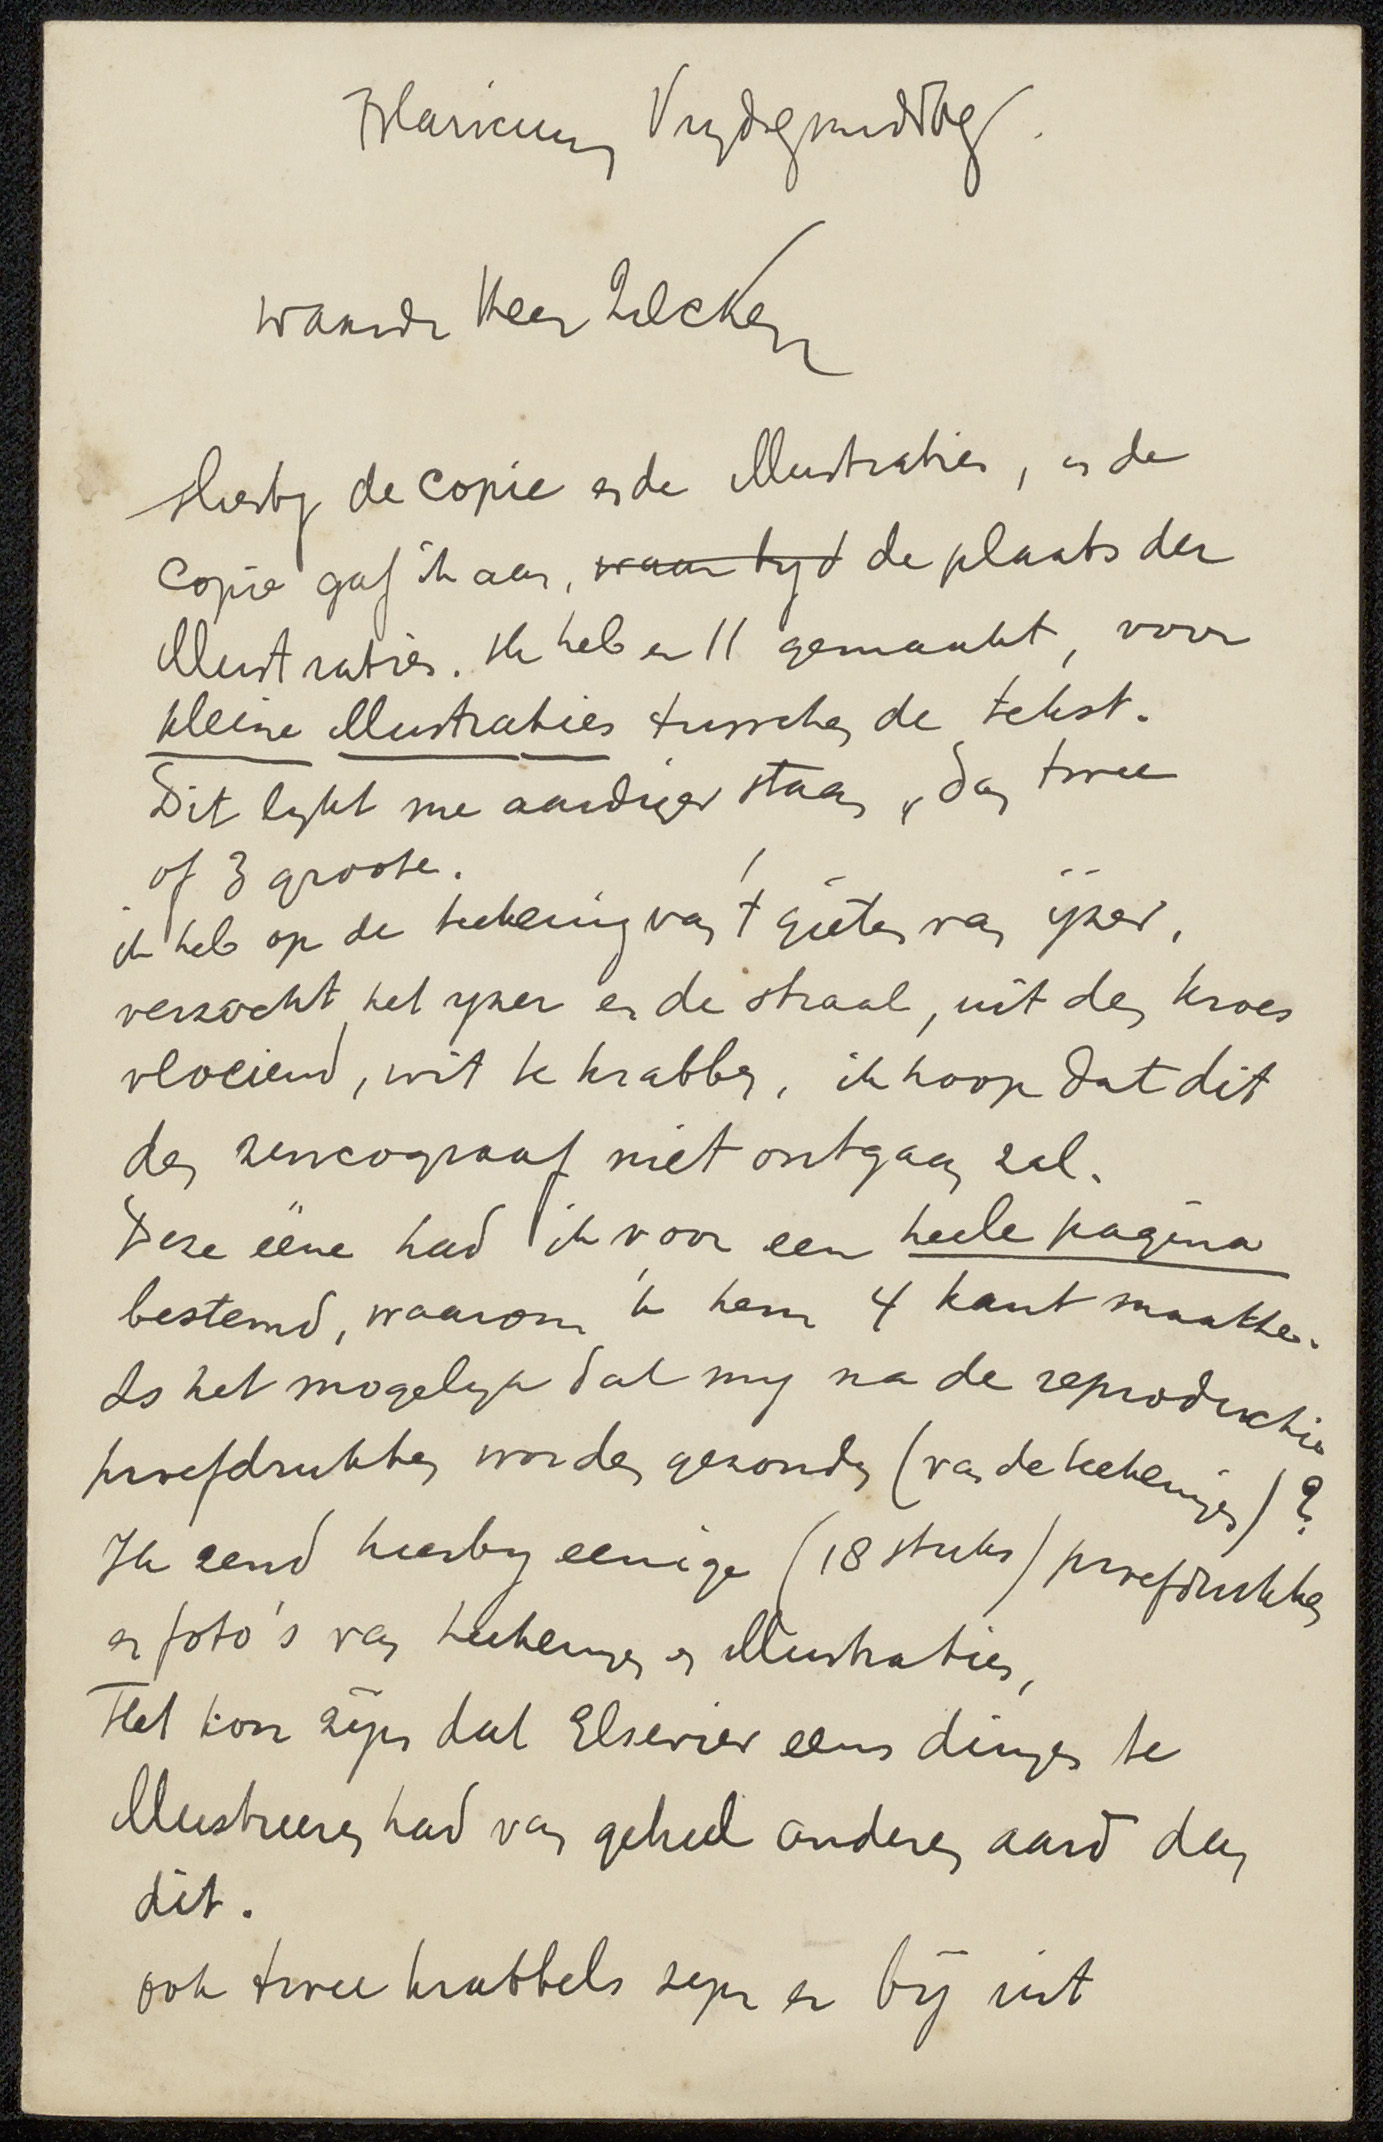 Blaricum, Vrydagmiddag.
Waarde Heer Zilcken
Hierby de copie en de illustraties, in de
copie gaf ik aan, waar tyd de plaats der
illustraties. Ik heb er 11 gemaakt, voor
kleine illustraties tusschen de tekst.
Dit lykt me aardiger staan, dan twee
of 3 groote.
ik heb op de teekening van 't gieten van ijzer,
verzocht het yzer en de straal, uit den kroes
vloeiend, wit te krabben, ik hoop dat dit
den zincograaf niet ontgaan zal.
Deze ééne had ik voor een heele pagina
bestemd, waarom ik hem 4 kant maakte.
Is het mogelyk dat my na de reproductie
proefdrukken worden gezonden (van de teekeningen)?
Ik zend hierby eenige (18 stuks) proefdrukken
en foto's van teekeningen en illustraties,
Het kon zijn dat Elsevier eens dingen te
illustreeren had van geheel anderen aard dan
dit.
ook twee krabbels zyn er bij uit